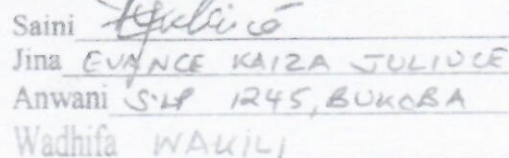 Saini
Jina EVANCE KAIZA JULIUCE
Anwani S.LP 1245, BUKOBA
Wadhifa WAKILI